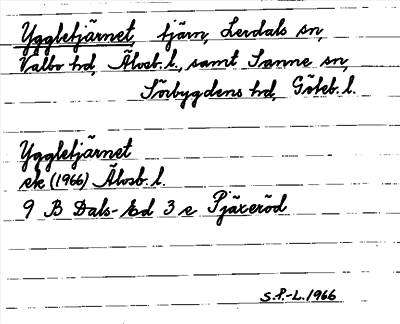 Yggletjärnet, tjärn, Lerdals sn,
Valbo hd, Älvsb. l., samt Sanne sn,
Sörbygdens hd, Göteb. l.
Yggletjärnet
ek (1966) Älvsb. l.
9 B Dals-Ed 3 e Pjäxeröd
S.F.-L. 1966